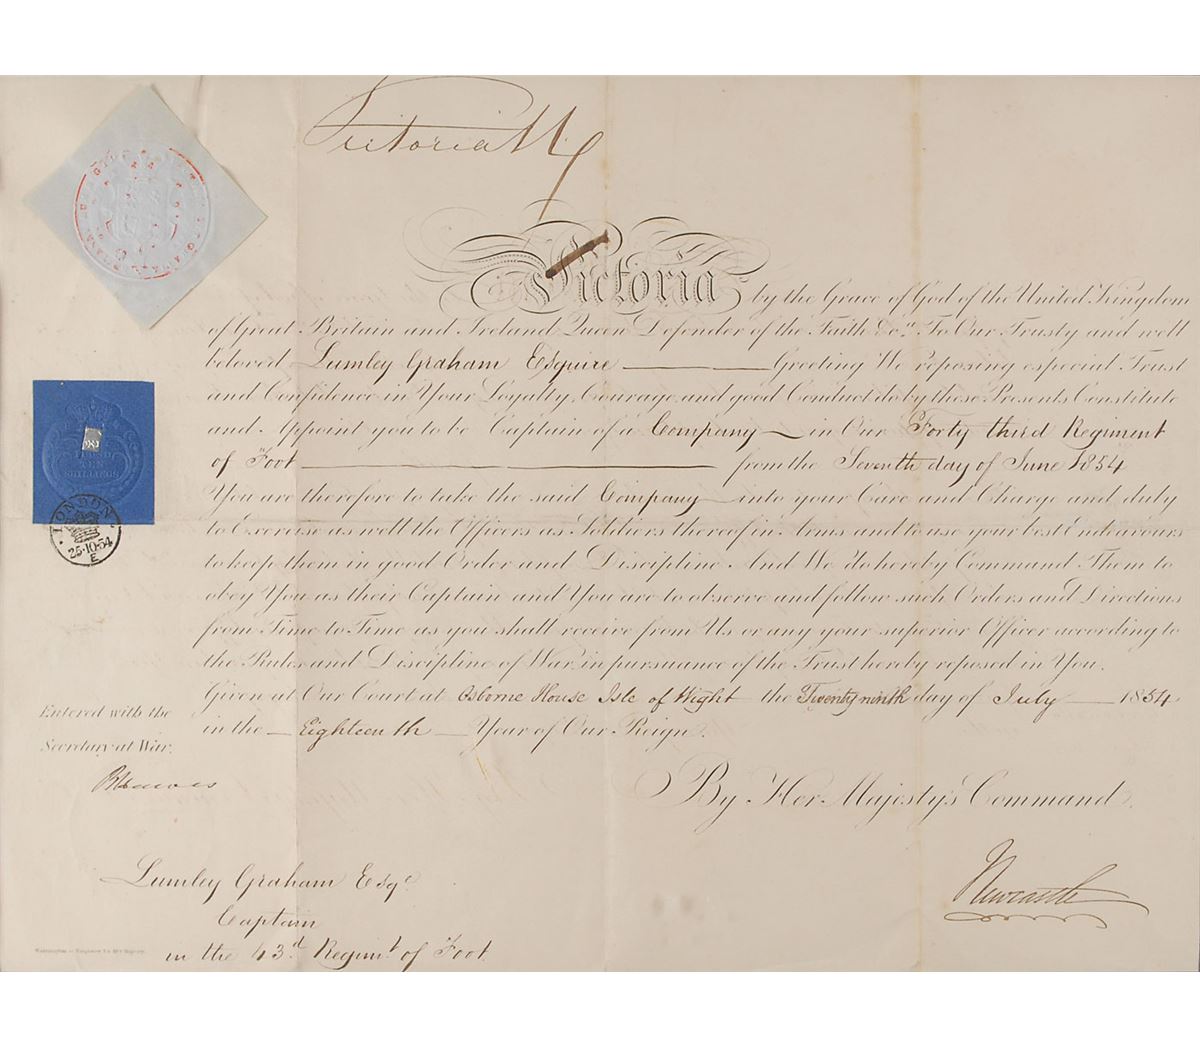 Victoria R
Victoria by the Grace of God of the United Kingdom
of Great Britain and Ireland Queen Defender of the Faith &c.a To Our Trusty and well
beloved Lumley Graham Esquire Greeting We reposing especial Trust
and Confidence in Your Loyalty, Courage, and good Conduct do by these Presents Constitute
and Appoint you to be Captain of a Company in Our Forty third Regiment
of Foot from the Seventh day of June 1854
You are therefore to take the said Company into your Care and Charge and duly
to Exercise as well the Officers as Soldiers thereof in Arms and to use your best Endeavours
to keep them in good Order and Discipline. And We do hereby Command Them to
obey You as their Captain and You are to observe and follow such Orders and Directions
from Time to Time as you shall receive from Us or any your superior Officer according to
the Rules and Discipline of War, in pursuance of the Trust hereby reposed in You.
Given at Our Court at Osborne House Isle of Wight the Twenty ninth day of July 1854
in the Eighteenth Year of Our Reign.
By Her Majesty's Command.
Newcastle
TEN
SHILLINGS
LONDON
25·10·54
E
Entered with the
Secretary at War.
Lumley Graham Esqe
Captain
in the 43d Regimt of Foot